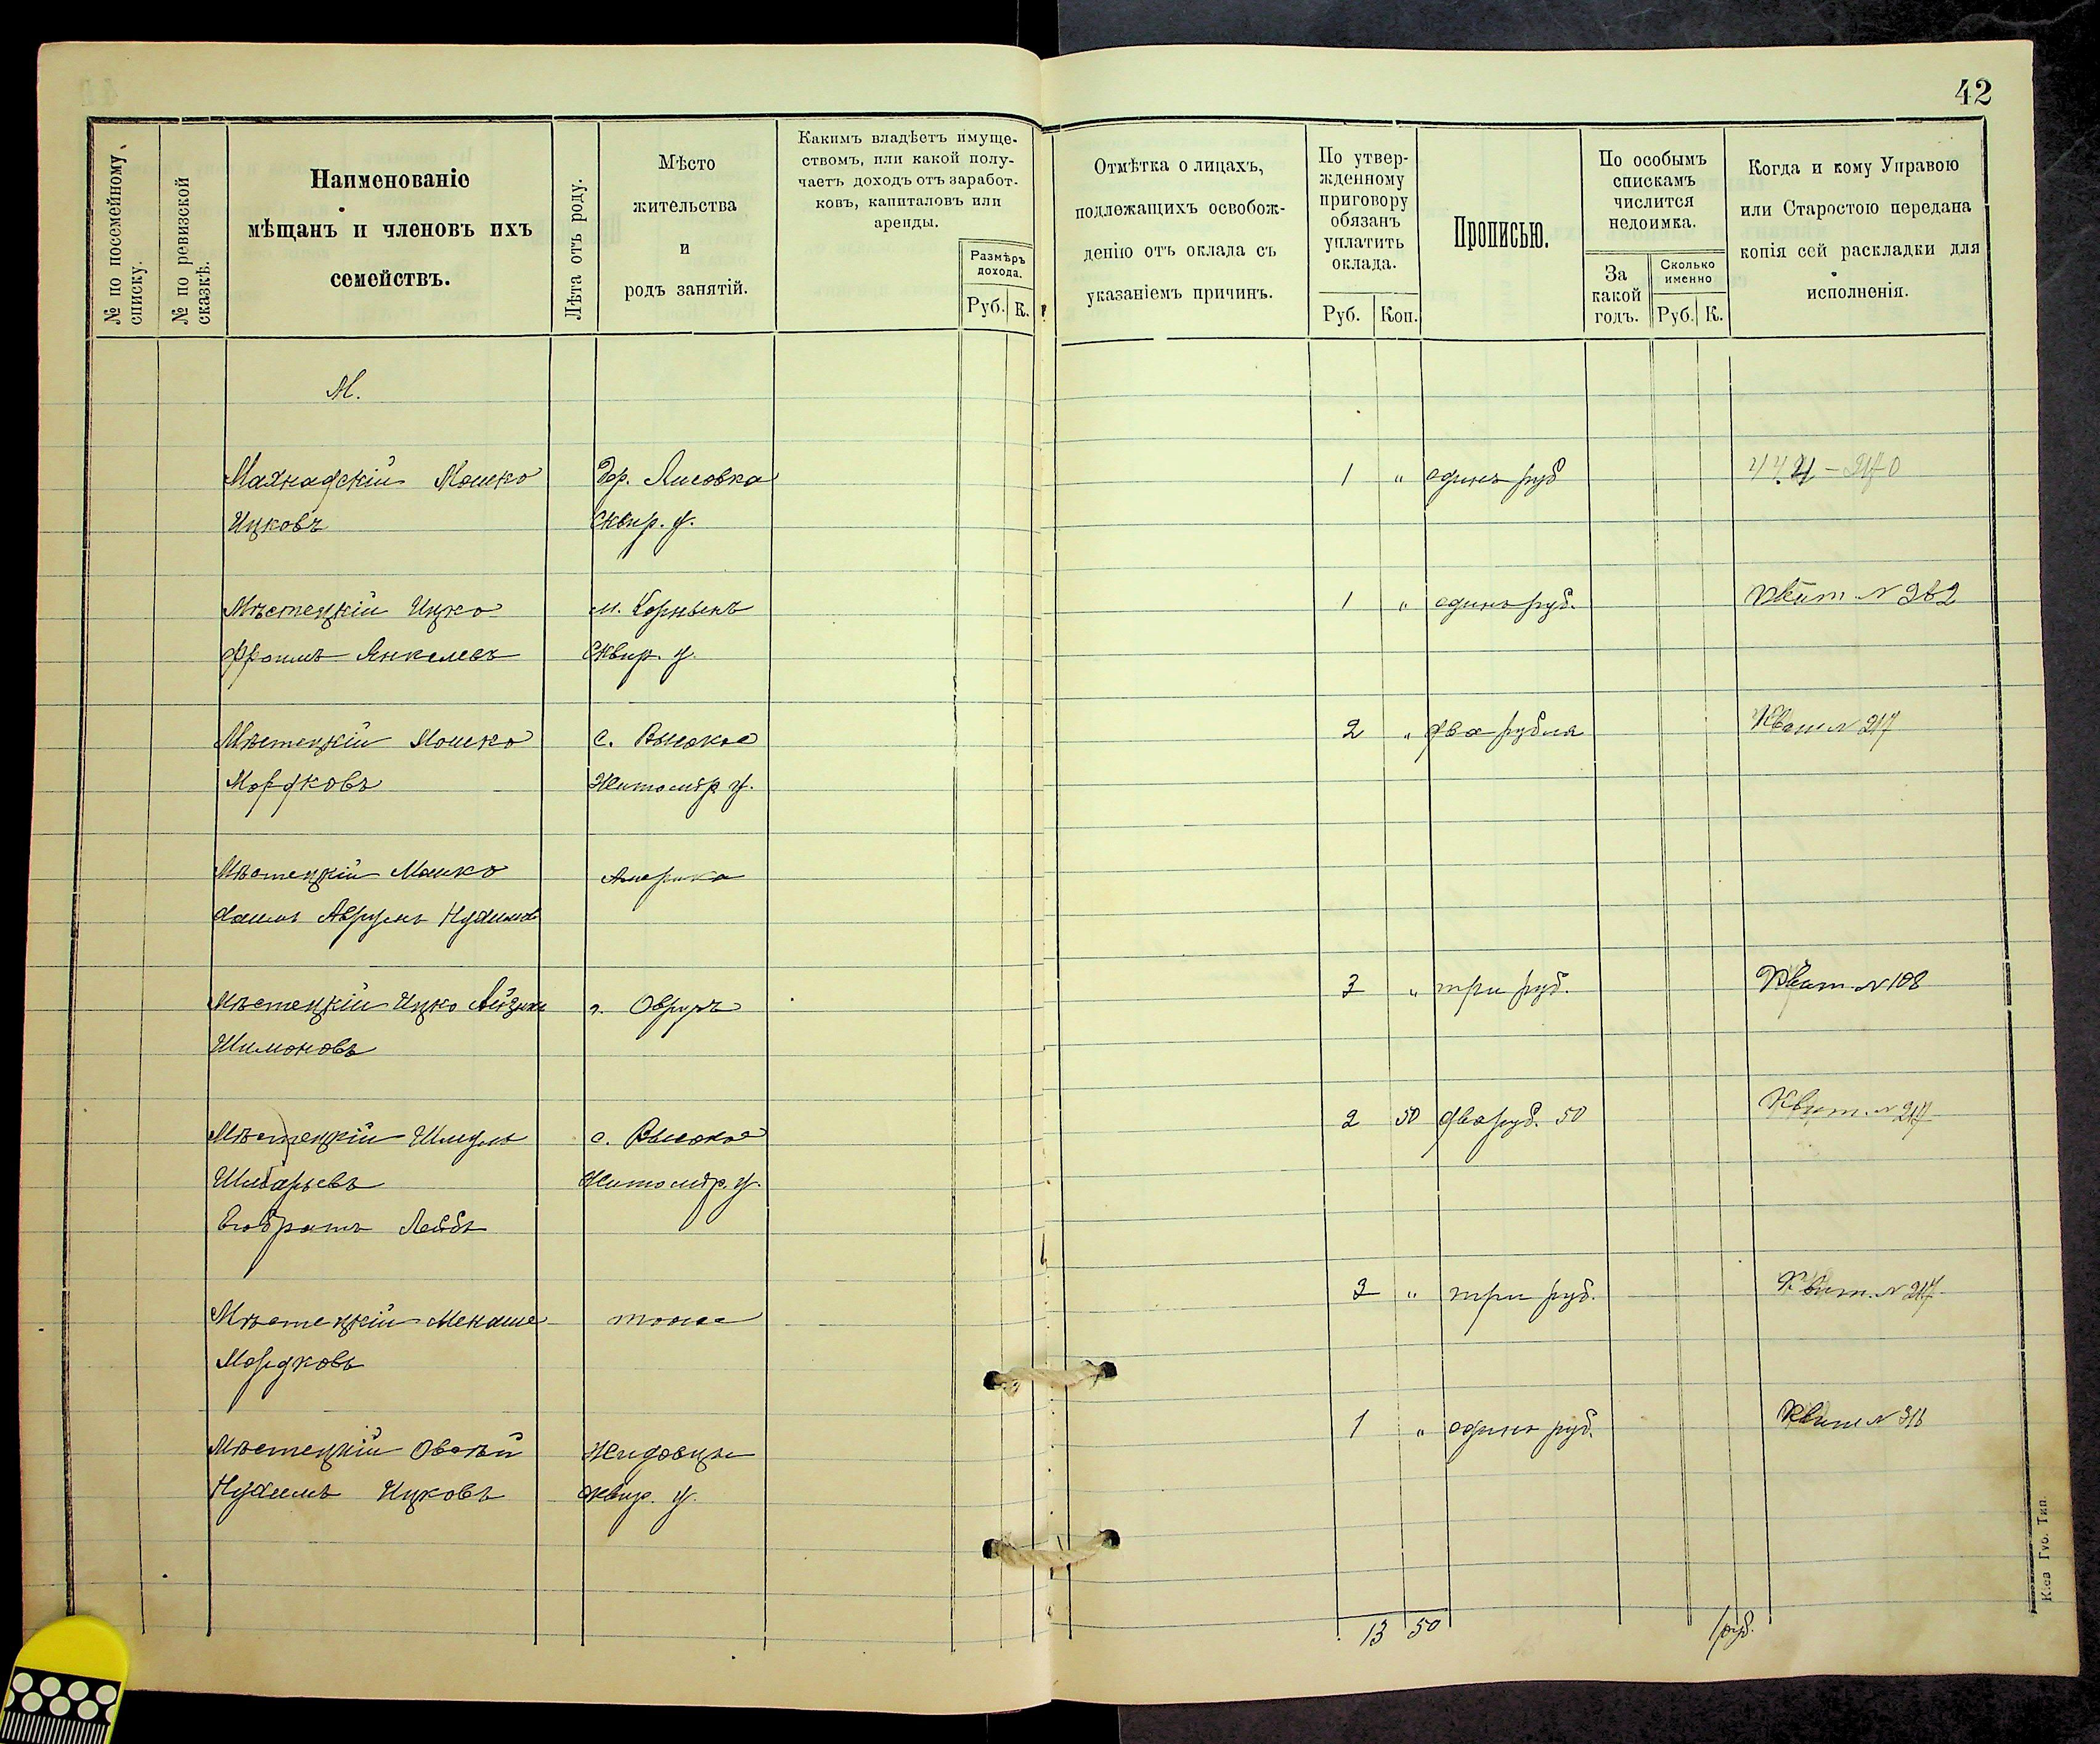 42
№ по посемейному списку.
№ по ревизской сказкѣ.
Наименованіе
мѣщанъ и членовъ ихъ
семействъ.
Лѣта отъ роду.
Мѣсто
жительства
и
родъ занятій.
Какимъ владѣетъ имуще-
ствомъ, или какой полу-
чаетъ доходъ отъ заработ-
ковъ, капиталовъ или
аренды.
Размѣръ
дохода.
Руб. К.
Отмѣтка о лицахъ,
подлежащихъ освобож-
денію отъ оклада съ
указаніемъ причинъ.
По утвер-
жденному
приговору
обязанъ
уплатить
оклада.
Руб. Коп.
Прописью.
По особымъ
спискамъ
числится
недоимка.
За
какой
годъ.
Сколько
именно
Руб. К.
Когда и кому Управою
или Старостою передана
копія сей раскладки для
исполненія.
М.
Махнадскій Мошко дер. Лисовка 1 " одинъ руб
Ицковъ Сквир. у.
Мѣстецкій Ицко- м. Корнинъ 1 " одинъ руб. Квит. №
Фроимъ Янкелевъ Сквир. у.
Мѣстецкій Мошко с. Высокое 2 " два рубля Квит № 217
Мордковъ Житомір. у.
Мѣстецкій Мошко Америка
Нухимов
Мѣстецкій Ицко Айзикъ г. Овручъ 3 " три руб. Квит № 108
Шимоновъ
Мѣстецкій Шмуль с. Высокое 2 50 два руб. 50 Квит. № 217
Шмарьевъ Житомір. у.
Его братъ Лейбъ
Мѣстецкій Менаше тоже 3 " три руб. Квит. № 217
Мордковъ
Мѣстецкій Овсѣй Жидовцы 1 " одинъ руб. Квит №
Нухимъ Ицковъ Сквир. у.
13 50
руб.
Кіев Губ. Тип.